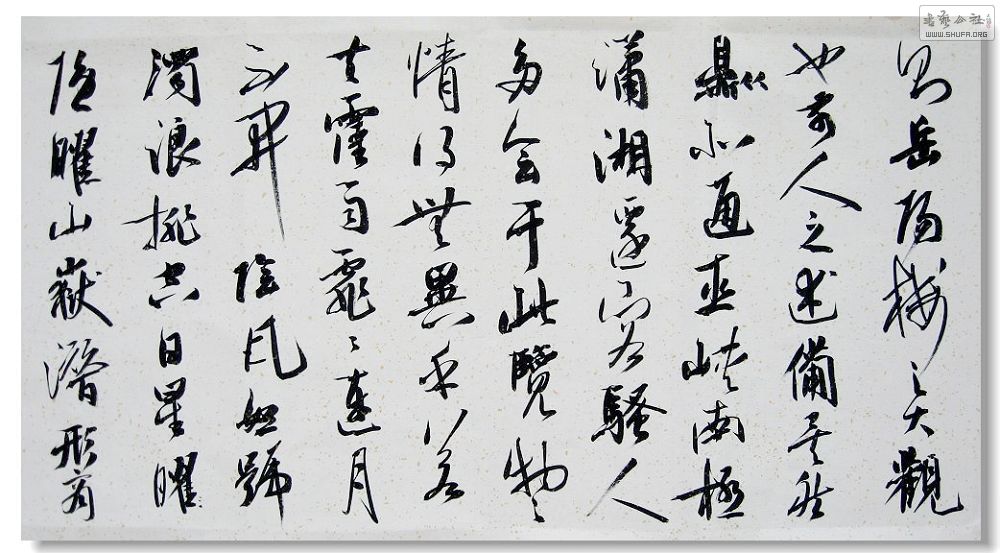 則岳陽樓之大觀
也前人之述備矣然
則北通巫峽南極
瀟湘遷客騷人
多會于此覽物之
情得無異乎若
夫霪雨霏〻連月
不開 陰風怒號
濁浪排空日星曜
隱曜山嶽潛形商
書藝公社
WWW.SHUFA.ORG